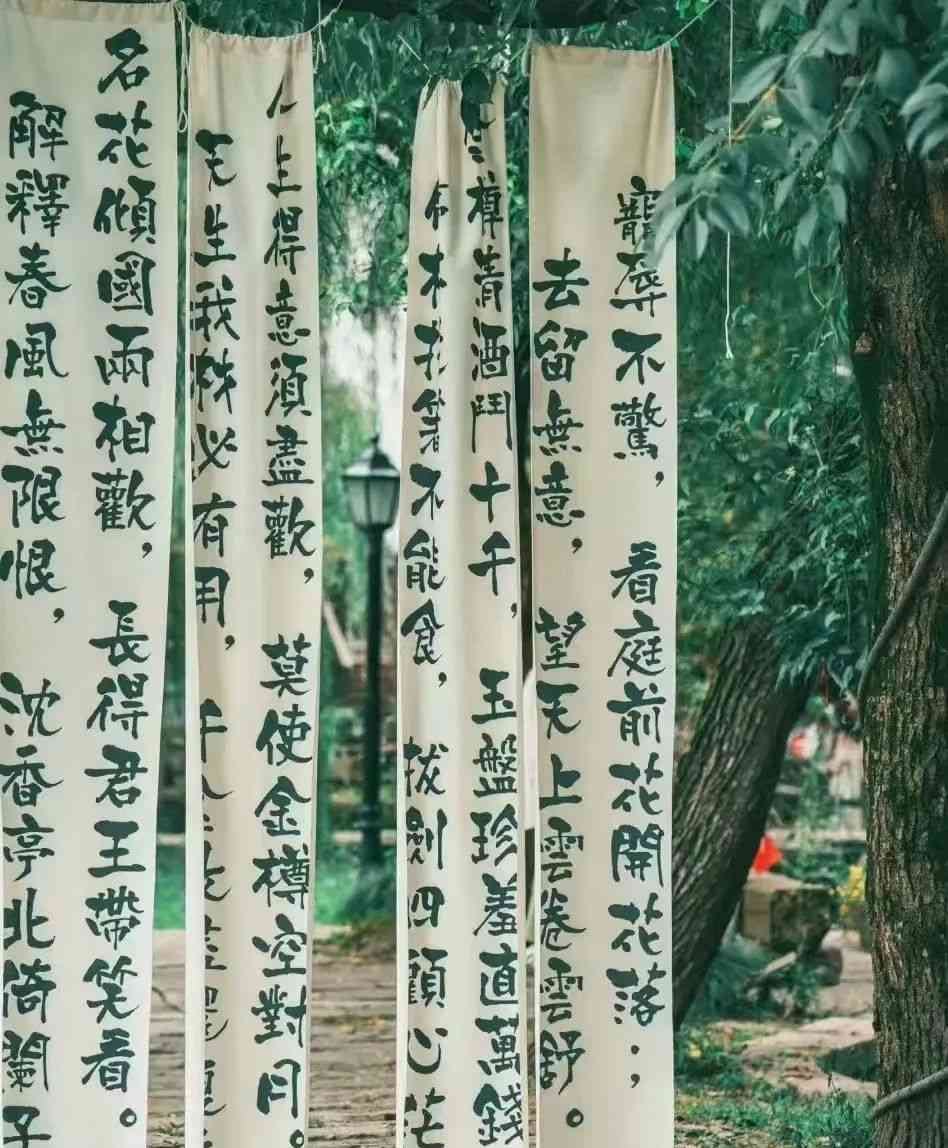 寵辱不驚，看庭前花開花落；
去留無意，望天上雲卷雲舒。
樽清酒鬥十千，玉盤珍羞直萬錢
杯投箸不能食，拔劍四顧心茫
人生得意須盡歡，莫使金樽空對月。
天生我材必有用，千
名花傾國兩相歡，長得君王帶笑看。
解釋春風無限恨，沈香亭北倚闌